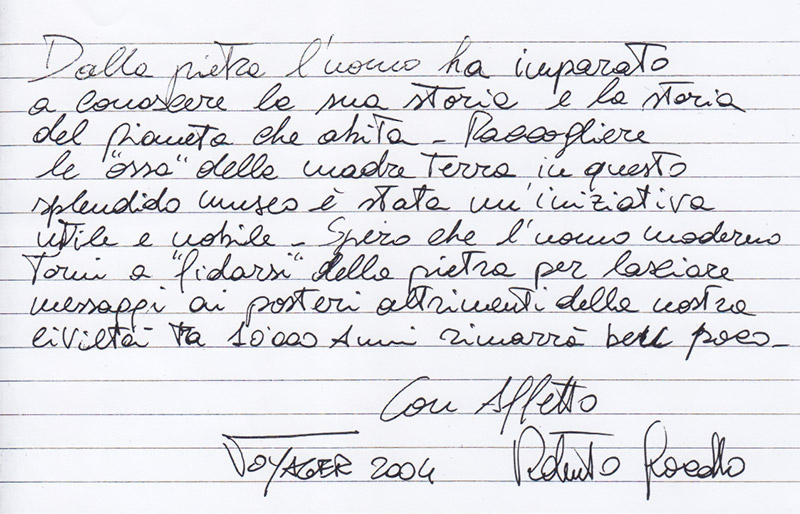 Dalla pietra l'uomo ha imparato
a conoscere la sua storia e la storia
del pianeta che abita - Raccogliere
le "ossa" della madre Terra in questo
splendido museo è stata un'iniziativa
utile e nobile - Spero che l'uomo moderno
torni a "fidarsi" della pietra per lasciare
messaggi ai posteri altrimenti della nostra
civiltà tra 10'000 Anni rimarrà ben poco -
Con Affetto
VOYAGER 2004 Roberto